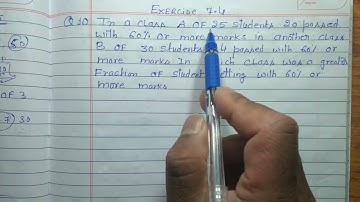 Exercise 7.4
Q.10 In a class A OF 25 students 20 passed
with 60% or more marks in another class
B OF 30 students, 4 passed with 60% or
more marks In ch class was a greate
Fraction of student tting with 60% or
more marks
OF 3
7) 30